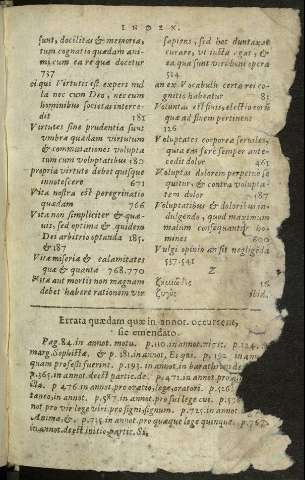 INDEX.
sunt, docilitas & memoria,
tum cognatio quædam ani-
mi, cum ea re qua docetur
737
si qui Virtutes est expers nul
la nec cum Deo, nec cum
hominibus societas interce-
dit 181
Virtutes sine prudentia sunt
umbra quædam virtutum
& commutationes volupta
tum cum voluptatibus 180
propria virtute debet quisque
innotescere 671
Vita nostra est peregrinatio
quædam 766
Vita non simpliciter & quæ-
vis, sed optima & quidem
Dei arbitrio optanda 185.
& 187
Vitæ miseria & calamitates
quæ & quanta 768.770
Vitæ aut mortis non magnam
debet habere rationem vir
sapiens, sed hoc duntaxat
curare, vt iusta agat, &
ea quæ sunt viri boni opera
524
an ex Vocabulis certa rei co-
gnitio habeatur 81
Voluntas est finis, electio eorũ
quæ ad finem pertinent
126
Voluptates corporeæ serviles,
quia eas fere semper ante-
cedit dolor 461
Voluptas dolorem perpetuo se
quitur, & contra volupta-
tem dolor 187
Voluptatibus & doloribus in-
dulgendo, quod maximum
malum consequatur ho-
mines 600
Vulgi opinio an sit negligẽda
537.541
Z
ibid.
Errata quædam quæ in annot. occurrent,
sic emendato.
Pag. 84. in annot. motu. p. 110. in annot. viris. p. 124.
marg. Sophistæ, & p. 181. in annot. Et qui. p. 192 in an
quam professi fuerint. p. 193. in annot. in barathron de
p. 365. in annot. dect. partic. de. p. 471. in annot. pro
sia. p. 476. in annot. pro oratio, lege, oratori. p. 556
taneo, in annot. p. 587. in annot. pro sui lege cui. p. 57
not. pro vir lege viri. pro signi, signum. p. 725. in annot
Anima, &, p. 735. in annot. pro quæque lege quinque. p. 787
in annot. dect. initio partic. Si,